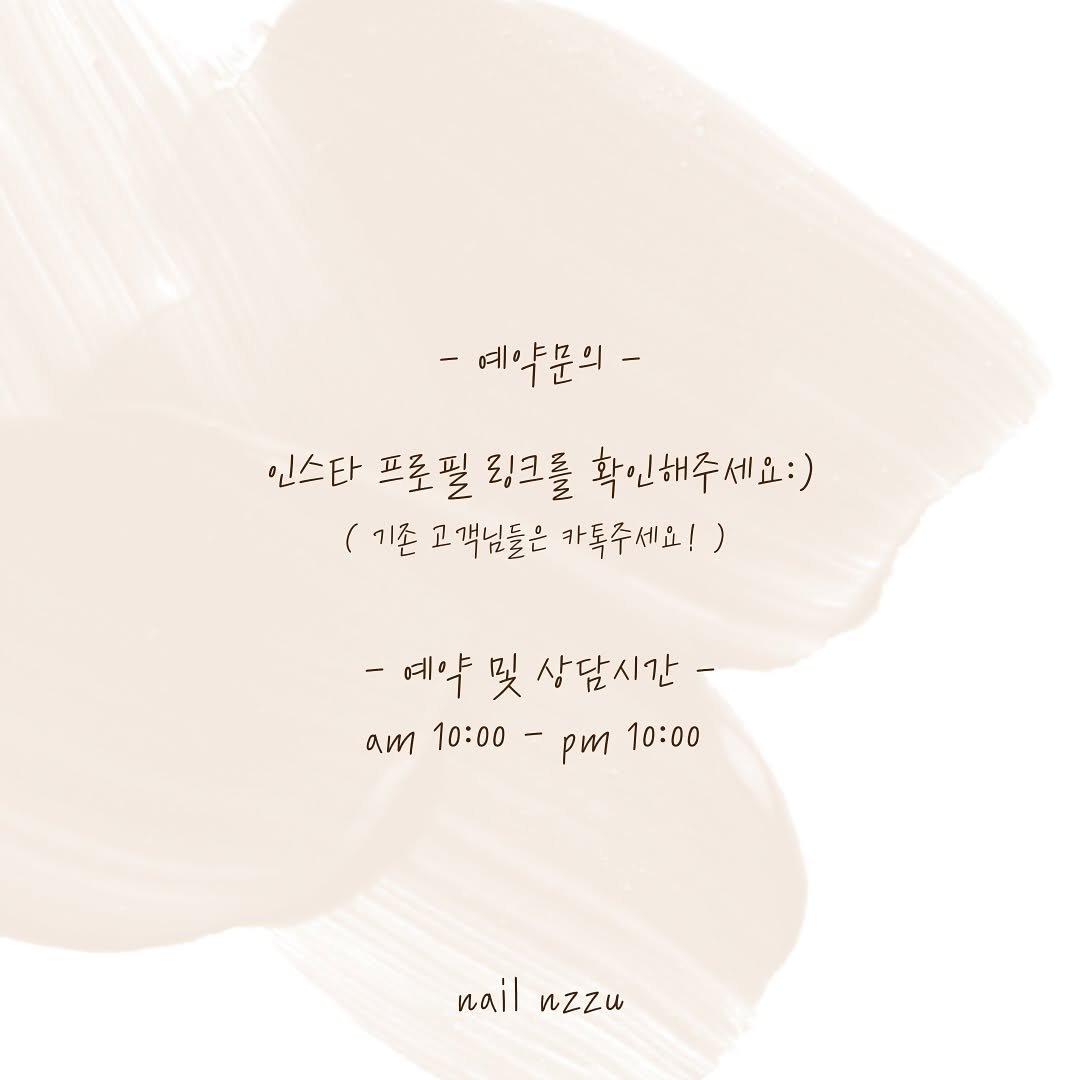 - 예약문의 -
인스타 프로필 링크를 확인해주세요:)
( 기존 고객님들은 카톡주세요! )
- 예약 및 상담시간 -
am 10:00 - pm 10:00
nail nzzu